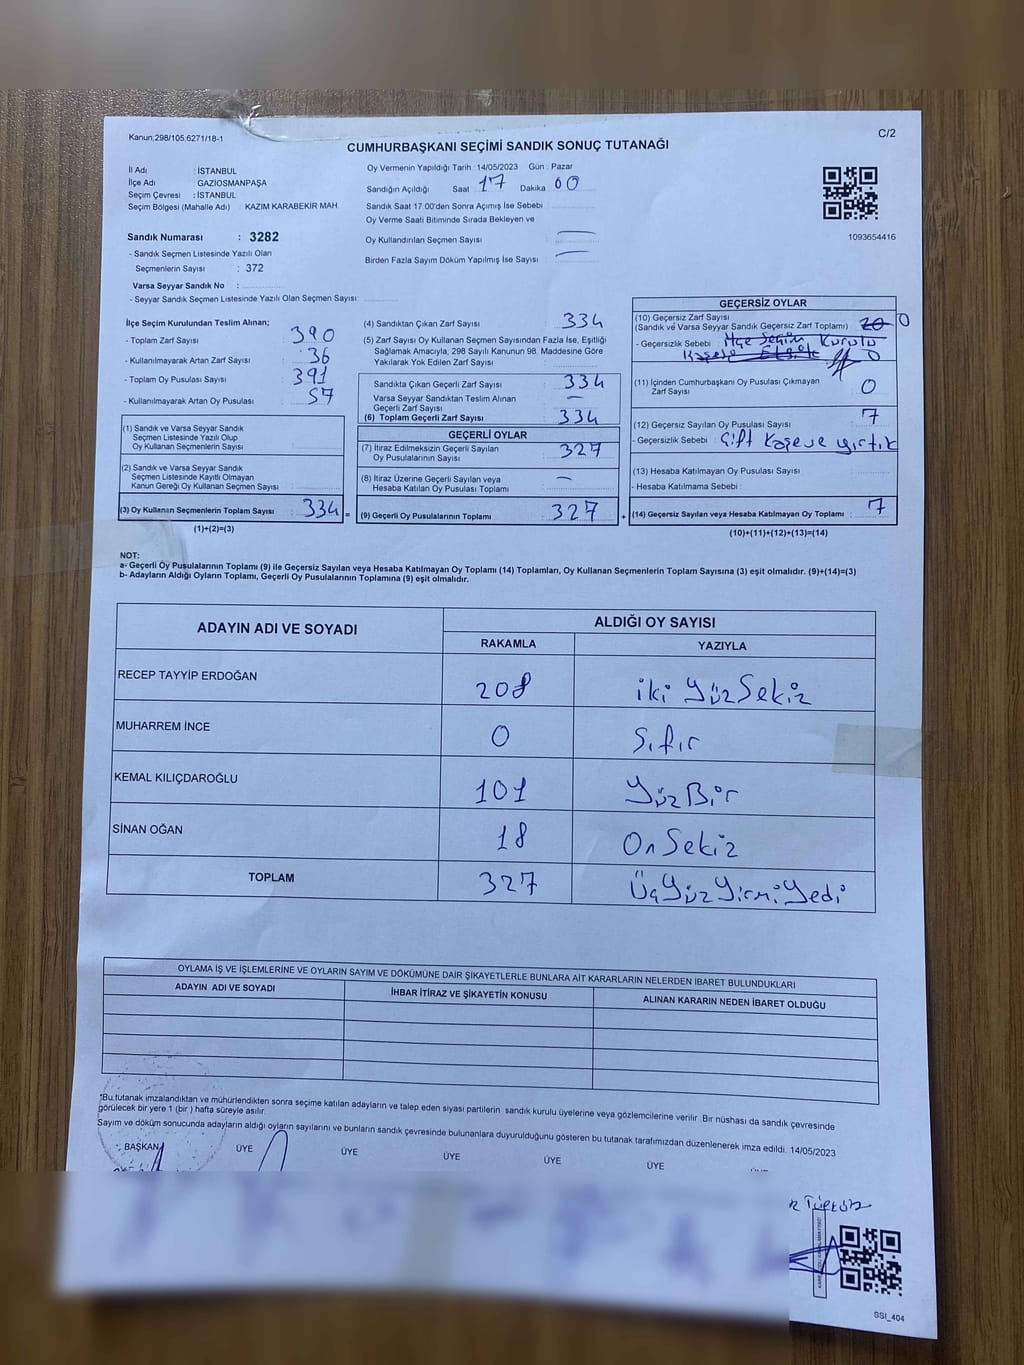 Kanun;298/105;6271/18-1
C/2
CUMHURBAŞKANI SEÇİMİ SANDIK SONUÇ TUTANAĞI
İl Adı : İSTANBUL
İlçe Adı : GAZİOSMANPAŞA
Seçim Çevresi : İSTANBUL
Seçim Bölgesi (Mahalle Adı) : KAZIM KARABEKİR MAH.
Oy Vermenin Yapıldığı Tarih : 14/05/2023 Gün : Pazar
Sandığın Açıldığı Saat 17 Dakika 00
Sandık Saat 17:00'den Sonra Açılmış İse Sebebi :
Oy Verme Saati Bitiminde Sırada Bekleyen ve
Oy Kullandırılan Seçmen Sayısı : —
Birden Fazla Sayım Döküm Yapılmış İse Sayısı : —
1093654416
Sandık Numarası : 3282
- Sandık Seçmen Listesinde Yazılı Olan
Seçmenlerin Sayısı : 372
Varsa Seyyar Sandık No :
- Seyyar Sandık Seçmen Listesinde Yazılı Olan Seçmen Sayısı:
İlçe Seçim Kurulundan Teslim Alınan;
- Toplam Zarf Sayısı : 390
- Kullanılmayarak Artan Zarf Sayısı : 36
- Toplam Oy Pusulası Sayısı : 391
- Kullanılmayarak Artan Oy Pusulası : 57
(1) Sandık ve Varsa Seyyar Sandık
Seçmen Listesinde Yazılı Olup
Oy Kullanan Seçmenlerin Sayısı :
(2) Sandık ve Varsa Seyyar Sandık
Seçmen Listesinde Kayıtlı Olmayan
Kanun Gereği Oy Kullanan Seçmen Sayısı :
(3) Oy Kullanan Seçmenlerin Toplam Sayısı : 334 =
(1)+(2)=(3)
(4) Sandıktan Çıkan Zarf Sayısı : 334
(5) Zarf Sayısı Oy Kullanan Seçmen Sayısından Fazla İse, Eşitliği
Sağlamak Amacıyla, 298 Sayılı Kanunun 98. Maddesine Göre
Yakılarak Yok Edilen Zarf Sayısı :
Sandıkta Çıkan Geçerli Zarf Sayısı : 334
Varsa Seyyar Sandıktan Teslim Alınan
Geçerli Zarf Sayısı : —
(6) Toplam Geçerli Zarf Sayısı : 334
GEÇERLİ OYLAR
(7) İtiraz Edilmeksizin Geçerli Sayılan
Oy Pusulalarının Sayısı : 327
(8) İtiraz Üzerine Geçerli Sayılan veya
Hesaba Katılan Oy Pusulası Toplamı : —
(9) Geçerli Oy Pusulalarının Toplamı : 327 +
GEÇERSİZ OYLAR
(10) Geçersiz Zarf Sayısı
(Sandık ve Varsa Seyyar Sandık Geçersiz Zarf Toplamı) : 20 0
- Geçersizlik Sebebi : İlçe Seçim Kurulu
Kaşesi Eksik 0
(11) İçinden Cumhurbaşkanı Oy Pusulası Çıkmayan
Zarf Sayısı : 0
(12) Geçersiz Sayılan Oy Pusulası Sayısı : 7
- Geçersizlik Sebebi : Çift Kaşe ve yırtık
(13) Hesaba Katılmayan Oy Pusulası Sayısı :
- Hesaba Katılmama Sebebi :
(14) Geçersiz Sayılan veya Hesaba Katılmayan Oy Toplamı : 7
(10)+(11)+(12)+(13)=(14)
NOT:
a- Geçerli Oy Pusulalarının Toplamı (9) ile Geçersiz Sayılan veya Hesaba Katılmayan Oy Toplamı (14) Toplamları, Oy Kullanan Seçmenlerin Toplam Sayısına (3) eşit olmalıdır. (9)+(14)=(3)
b- Adayların Aldığı Oyların Toplamı, Geçerli Oy Pusulalarının Toplamına (9) eşit olmalıdır.
ADAYIN ADI VE SOYADI ALDIĞI OY SAYISI
RAKAMLA YAZIYLA
RECEP TAYYİP ERDOĞAN 208 iki YüzSekiz
MUHARREM İNCE 0 Sıfır
KEMAL KILIÇDAROĞLU 101 YüzBir
SİNAN OĞAN 18 OnSekiz
TOPLAM 327 ÜçYüzYirmiYedi
OYLAMA İŞ VE İŞLEMLERİNE VE OYLARIN SAYIM VE DÖKÜMÜNE DAİR ŞİKAYETLERLE BUNLARA AİT KARARLARIN NELERDEN İBARET BULUNDUKLARI
ADAYIN ADI VE SOYADI İHBAR İTİRAZ VE ŞİKAYETİN KONUSU ALINAN KARARIN NEDEN İBARET OLDUĞU
*Bu tutanak imzalandıktan ve mühürlendikten sonra seçime katılan adayların ve talep eden siyasi partilerin sandık kurulu üyelerine veya gözlemcilerine verilir. Bir nüshası da sandık çevresinde
görülecek bir yere 1 (bir) hafta süreyle asılır.
Sayım ve döküm sonucunda adayların aldığı oyların sayılarını ve bunların sandık çevresinde bulunanlara duyurulduğunu gösteren bu tutanak tarafımızdan düzenlenerek imza edildi. 14/05/2023
BAŞKAN ÜYE ÜYE ÜYE ÜYE ÜYE
SSI_404